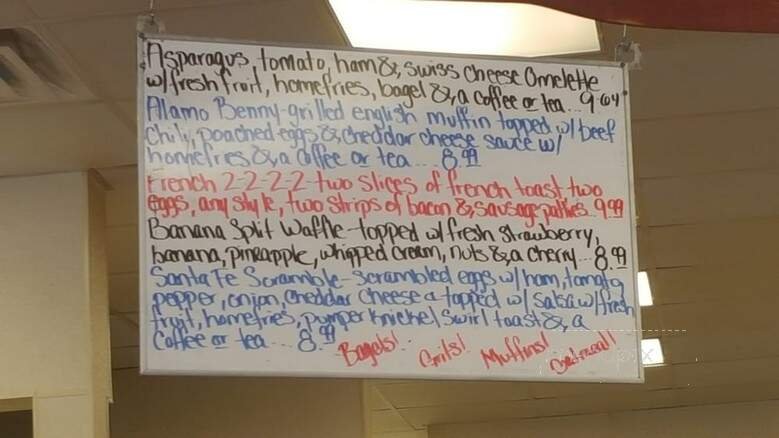 Asparagus, tomato, ham &, swiss cheese Omelette
w/fresh fruit, homefries, bagel &, a coffee or tea...
Alamo Benny-grilled english muffin topped w/ beef
Chili, poached eggs & cheddar cheese sauce w/
homefries &, a coffee or tea... 8.99
French 2-2-2-2 two slices of french toast two
eggs, any style, two strips of bacon &, sausage patties. 9.99
Banana Split Waffle-topped w/ fresh strawberry,
banana, pineapple, whipped cream, nuts &, a cherry... 8.99
Santa Fe Scramble-scrambled eggs w/ ham, tomato,
pepper, onion, cheddar cheese topped w/ salsa w/ fresh
fruit, homefries, pumperknickel swirl toast &, a
coffee or tea.... 8.99
Bagels! Grits! Muffins! Oatmeal!